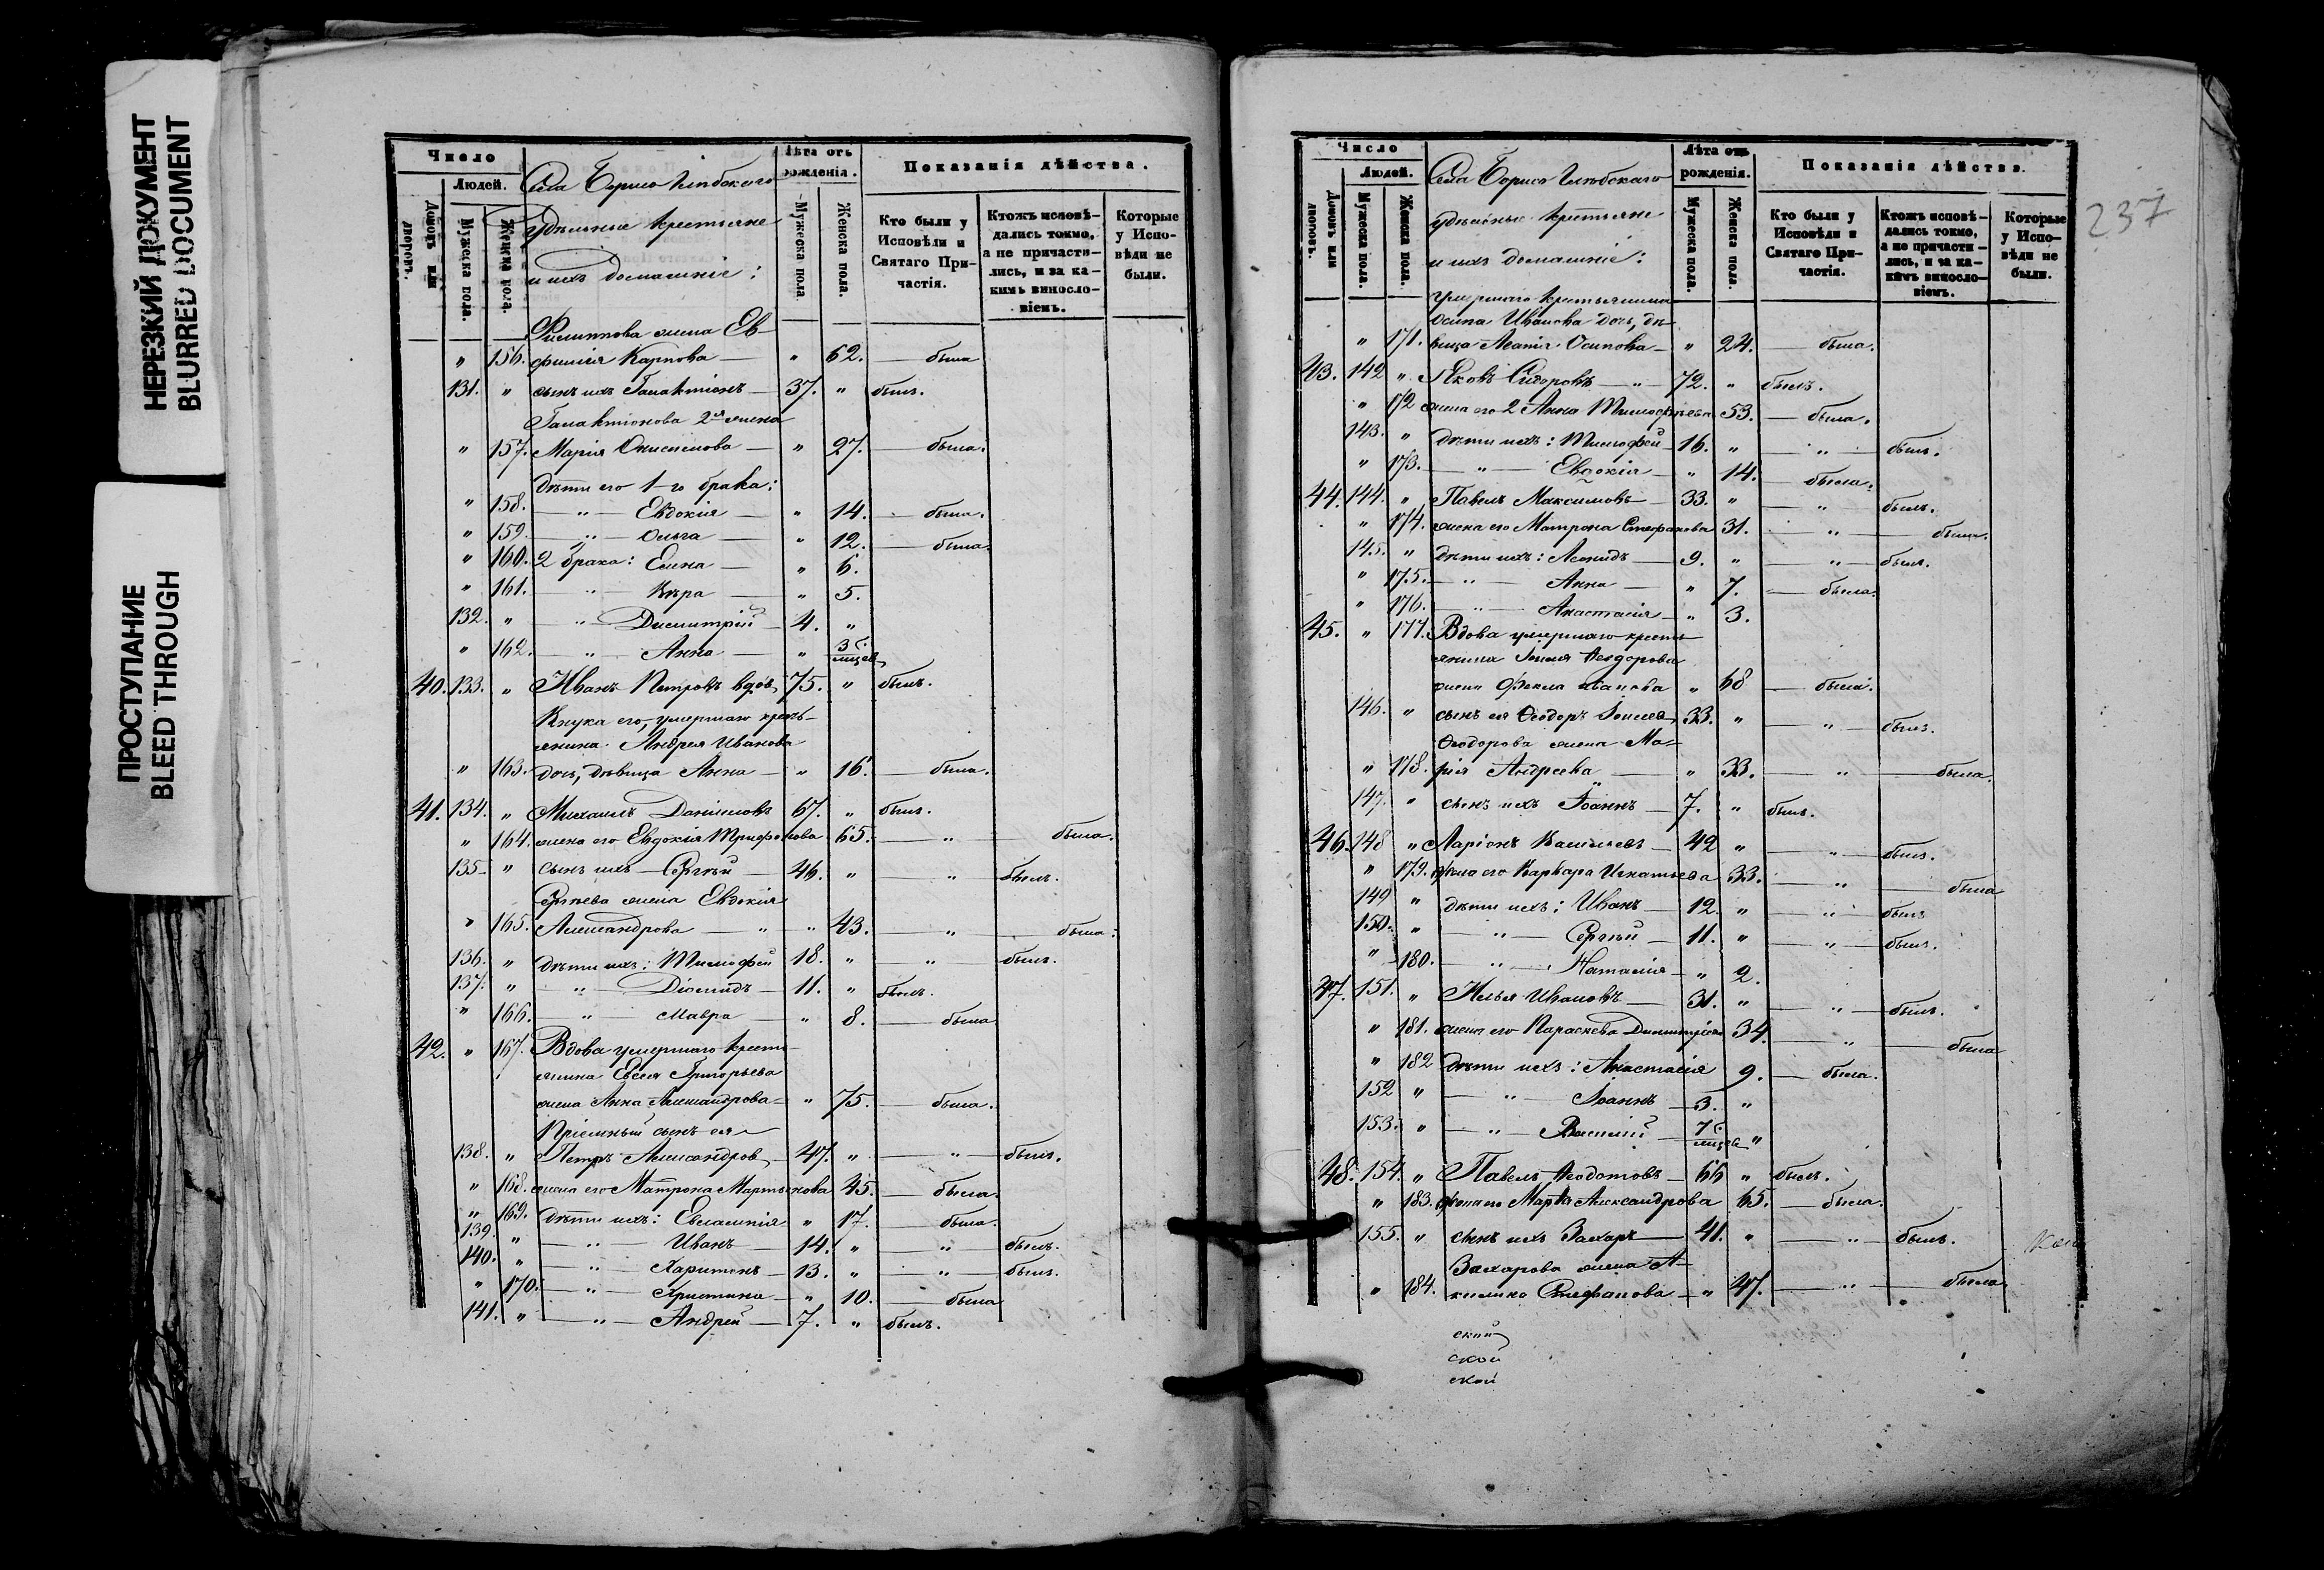 НЕРЕЗКИЙ ДОКУМЕНТ
BLURRED DOCUMENT
ПРОСТУПАНИЕ
BLEED THROUGH
Число
Людей.
Домовъ или дворовъ.
Мужеска пола.
Женска пола.
Села Борисо Глѣбскаго
удѣльные крестьяне
и ихъ домашніе:
Лѣта отъ рожденія.
Мужеска пола.
Женска пола.
Показанія дѣйства.
Кто были у Исповѣди и Святаго Причастія.
Ктожъ исповѣдались токмо, а не причастились, и за какимъ винословіемъ.
Которые у Исповѣди не были.
Филиппова жена Ев-
" 156. фимія Карпова — " 62. — была
131. " сынъ ихъ Галактіонъ — 37. " былъ.
Галактіонова 2я жена
" 157. Марія Онисимова — " 27. — была.
дѣти его 1-го брака:
" 158. — " — Евдокія — " 14. — была.
" 159. — " — Ольга — " 12. — была.
" 160. 2 брака: Елена — " 6.
" 161. — " — Вѣра — " 5.
132. " — " — Димитрій — 4. "
" 162. — " — Анна — " 3 мѣсяц.
40. 133. " Иванъ Петровъ вдов. 75. " былъ.
Внука его, умершаго кресть-
янина Андрея Иванова
" 163. дочь, дѣвица Анна — " 16. — была.
41. 134. " Михаилъ Даниловъ 67. " былъ.
" 164. жена его Евдокія Трифонова 65. — " — была.
135. " сынъ ихъ Сергѣй — 46. " — " — былъ.
Сергѣева жена Евдокія
" 165. Александрова — " " 43. — " — была.
136. " дѣти ихъ: Тимофей 18. " — " — былъ.
137. " — " — Діомидъ — 11. " былъ.
" 166. — " — Мавра — " 8. — была
42. " 167. Вдова умершаго кресть-
янина Евсея Григорьева
жена Анна Александрова — " 75. — была.
Пріемный сынъ ея
138. " Петръ Александров. — 47. " — " — былъ.
" 168. жена его Матрона Мартынова 45. — была.
" 169. дѣти ихъ: Евлампія " 17. — была.
139. " — " — Иванъ — 14. " — " — былъ.
140. " — " — Харитонъ — 13. " — " — былъ.
" 170. — " — Христина — " 10. — была
141. " — " — Андрей — 7. " былъ.
237
Число
Людей.
Домовъ или дворовъ.
Мужеска пола.
Женска пола.
Села Борисо Глѣбскаго
удѣльные крестьяне
и ихъ домашніе:
Лѣта отъ рожденія.
Мужеска пола.
Женска пола.
Показанія дѣйства.
Кто были у Исповѣди и Святаго Причастія.
Ктожъ исповѣдались токмо, а не причастились, и за какимъ винословіемъ.
Которые у Исповѣди не были.
умершаго крестьянина
Осипа Иванова дочь, дѣ-
" 171. вица Осипова — " 24. — была.
43. 142 " Яковъ Сидоровъ — " — 72. " былъ.
" 172 жена его 2 Анна Тимофѣева 53. — была.
143. " дѣти ихъ: Тимофей — 16. " — " — былъ.
" 173. — " — Евдокія — " 14. — была.
44. 144. " Павелъ Максимовъ — 33. " — " — былъ.
" 174. жена его Матрона Стефанова 31. — " — была.
145. " дѣти ихъ: Леонидъ — 9. " — " — былъ.
" 175. — " — Анна — " 7. — была.
" 176. — " — Анастасія — " 3.
45. " 177. Вдова умершаго кресть-
янина Ѳеодорова
жена Фекла Иванова " 68 — была.
146. " сынъ ея Ѳеодоръ 33. " — " — былъ.
Ѳеодорова жена Ма-
" 178. рія Андреева — " 33. — " — была.
147. " сынъ ихъ Іоаннъ — 7. " былъ.
46. 148 " Ларіонъ Васильевъ — 42 " — " — былъ.
" 179. жена его Варвара Игнатьева 33. — " — была
149 " дѣти ихъ: Иванъ — 12. " — " — былъ
150. " — " — Сергѣй — 11. " — " — былъ.
" 180. — " — Наталія — " 2.
47. 151. " Илья Ивановъ — 31. " — " — былъ.
" 181. жена его Параскева Димитріева 34. — " — была
" 182 дѣти ихъ: Анастасія 9. — была.
152 " — " — Іоаннъ — 3. "
153. " — " — Василій — 7 мѣсяц. "
48. 154. " Павелъ Ѳеодотовъ — 66 " былъ.
" 183. жена его Марѳа Александрова 65. — была.
155. " сынъ ихъ Захаръ — 41. " — " — былъ.
Захарова жена А-
" 184. килина Стефанова — " 47. — " — была
ский
ской
ской